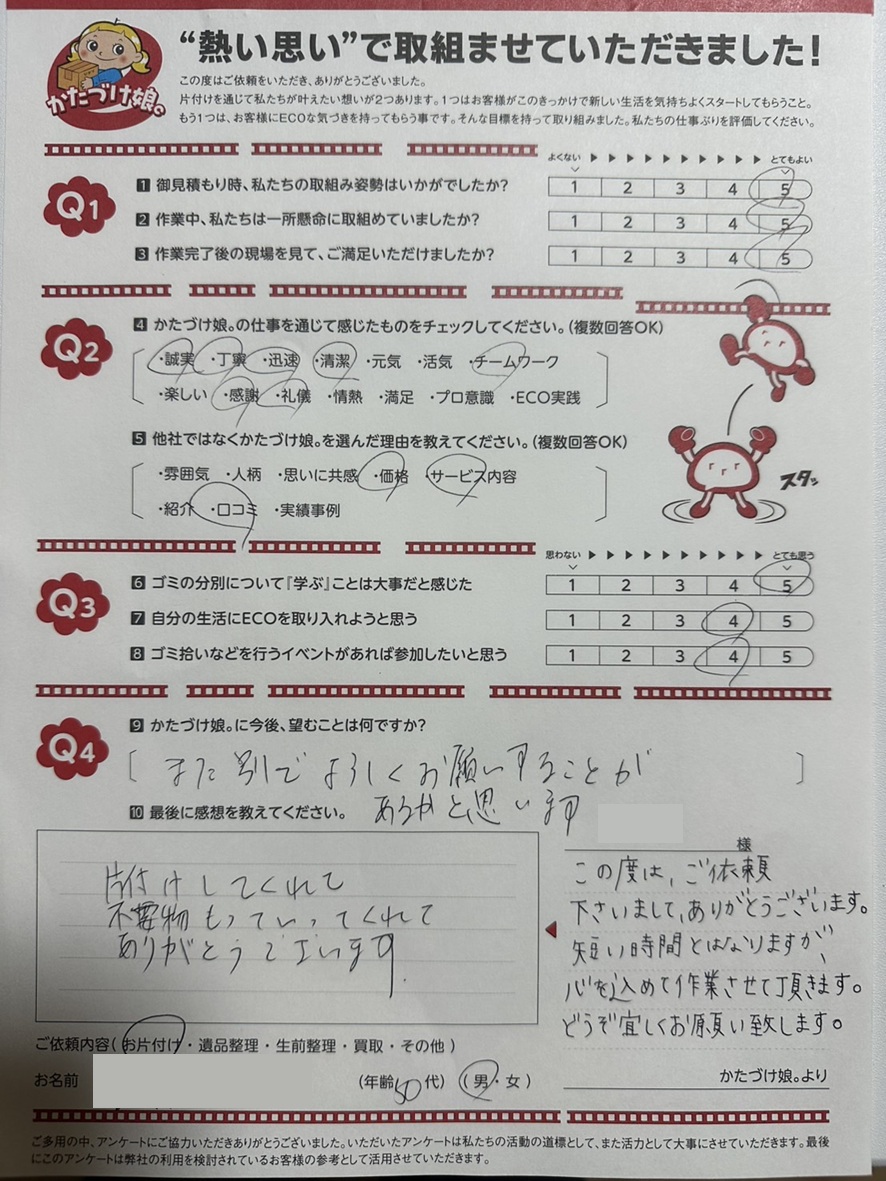 かたづけ娘。
“熱い思い”で取組ませていただきました！
この度はご依頼をいただき、ありがとうございました。
片付けを通じて私たちが叶えたい想いが2つあります。1つはお客様がこのきっかけで新しい生活を気持ちよくスタートしてもらうこと。
もう1つは、お客様にECOな気づきを持ってもらう事です。そんな目標を持って取り組みました。私たちの仕事ぶりを評価してください。
よくない ▶ ▶ ▶ ▶ ▶ ▶ ▶ ▶ ▶ ▶ とてもよい
Q1
1 御見積もり時、私たちの取組み姿勢はいかがでしたか？ 1 2 3 4 5
2 作業中、私たちは一所懸命に取組めていましたか？ 1 2 3 4 5
3 作業完了後の現場を見て、ご満足いただけましたか？ 1 2 3 4 5
Q2
4 かたづけ娘。の仕事を通じて感じたものをチェックしてください。（複数回答OK）
・誠実 ・丁寧 ・迅速 ・清潔 ・元気 ・活気 ・チームワーク
・楽しい ・感謝 ・礼儀 ・情熱 ・満足 ・プロ意識 ・ECO実践
5 他社ではなくかたづけ娘。を選んだ理由を教えてください。（複数回答OK）
・雰囲気 ・人柄 ・思いに共感 ・価格 ・サービス内容
・紹介 ・口コミ ・実績事例
スタッ
思わない ▶ ▶ ▶ ▶ ▶ ▶ ▶ ▶ ▶ ▶ とても思う
Q3
6 ゴミの分別について『学ぶ』ことは大事だと感じた 1 2 3 4 5
7 自分の生活にECOを取り入れようと思う 1 2 3 4 5
8 ゴミ拾いなどを行うイベントがあれば参加したいと思う 1 2 3 4 5
Q4
9 かたづけ娘。に今後、望むことは何ですか？
また別でよろしくお願いすることが
あるかと思います
10 最後に感想を教えてください。
片付けしてくれて
不要物もっていってくれて
ありがとうございます
様
この度は、ご依頼
下さいまして、ありがとうございます。
短い時間とはなりますが、
心を込めて作業させて頂きます。
どうぞ宜しくお願い致します。
かたづけ娘。より
ご依頼内容（お片付け・遺品整理・生前整理・買取・その他）
お名前 （年齢50代）（男・女）
ご多用の中、アンケートにご協力いただきありがとうございました。いただいたアンケートは私たちの活動の道標として、また活力として大事にさせていただきます。最後
にこのアンケートは弊社の利用を検討されているお客様の参考として活用させていただきます。